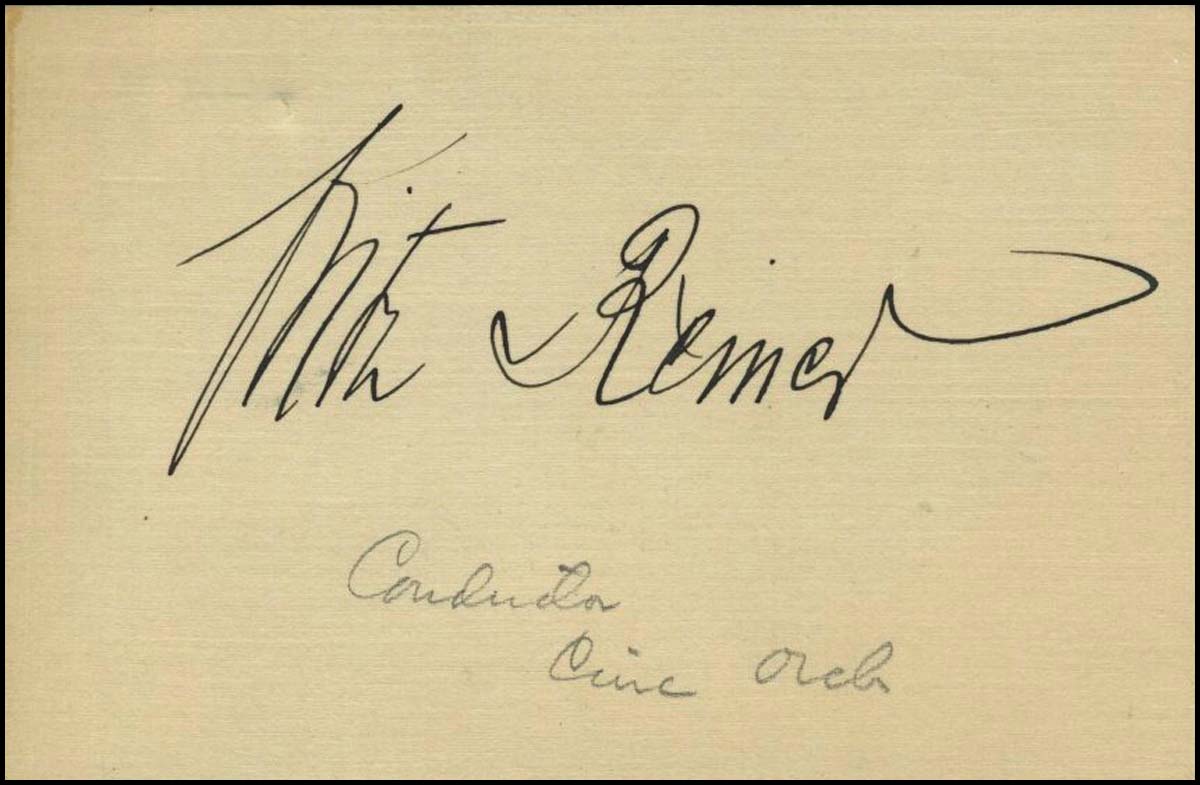 Fritz Reiner
Conductor
Cinc Orch